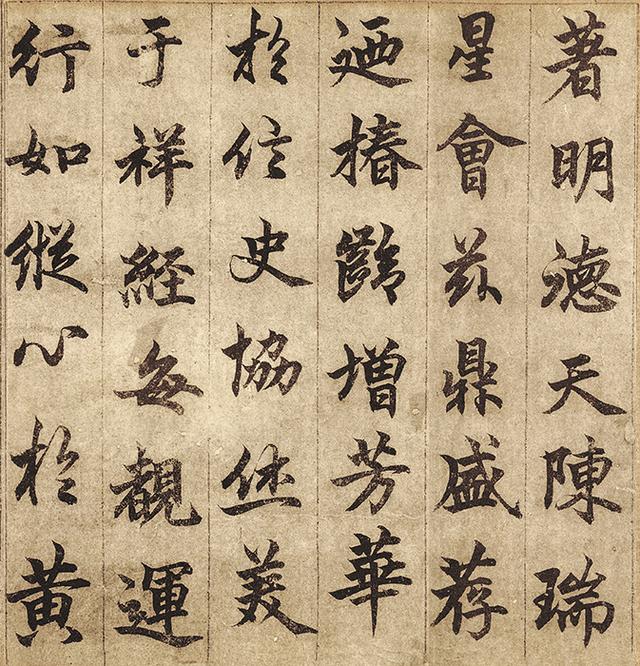 著明德天陳瑞
星會茲鼎盛荐
迺椿齡增芳華
於信史協休美
于祥經每覩運
行如縱心於黃